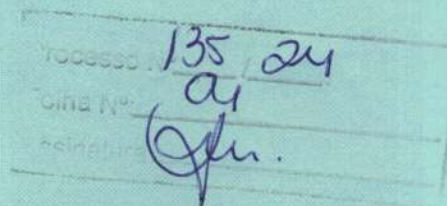 rocesso N° 135 / 24
olha Nº 01
ssinatura